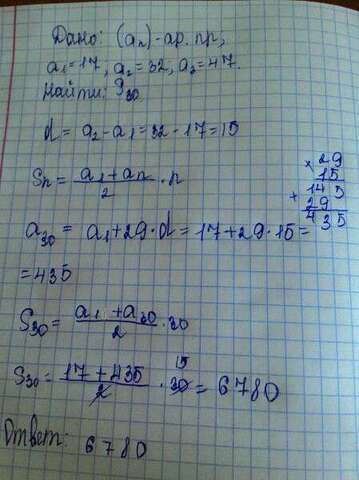 Дано: (aₙ)-ар. пр,
a₁=17, a₂=32, a₃=47.
Найти: S₃₀
d = a₂-a₁=32-17=15
Sₙ = (a₁+aₙ)/2 · n
× 29
15
+ 145
29
435
a₃₀ = a₁+29·d = 17+29·15=
=435
S₃₀ = (a₁+a₃₀)/2 · 30
S₃₀ = (17+435)/2 · 30 15 = 6780
Ответ: 6780